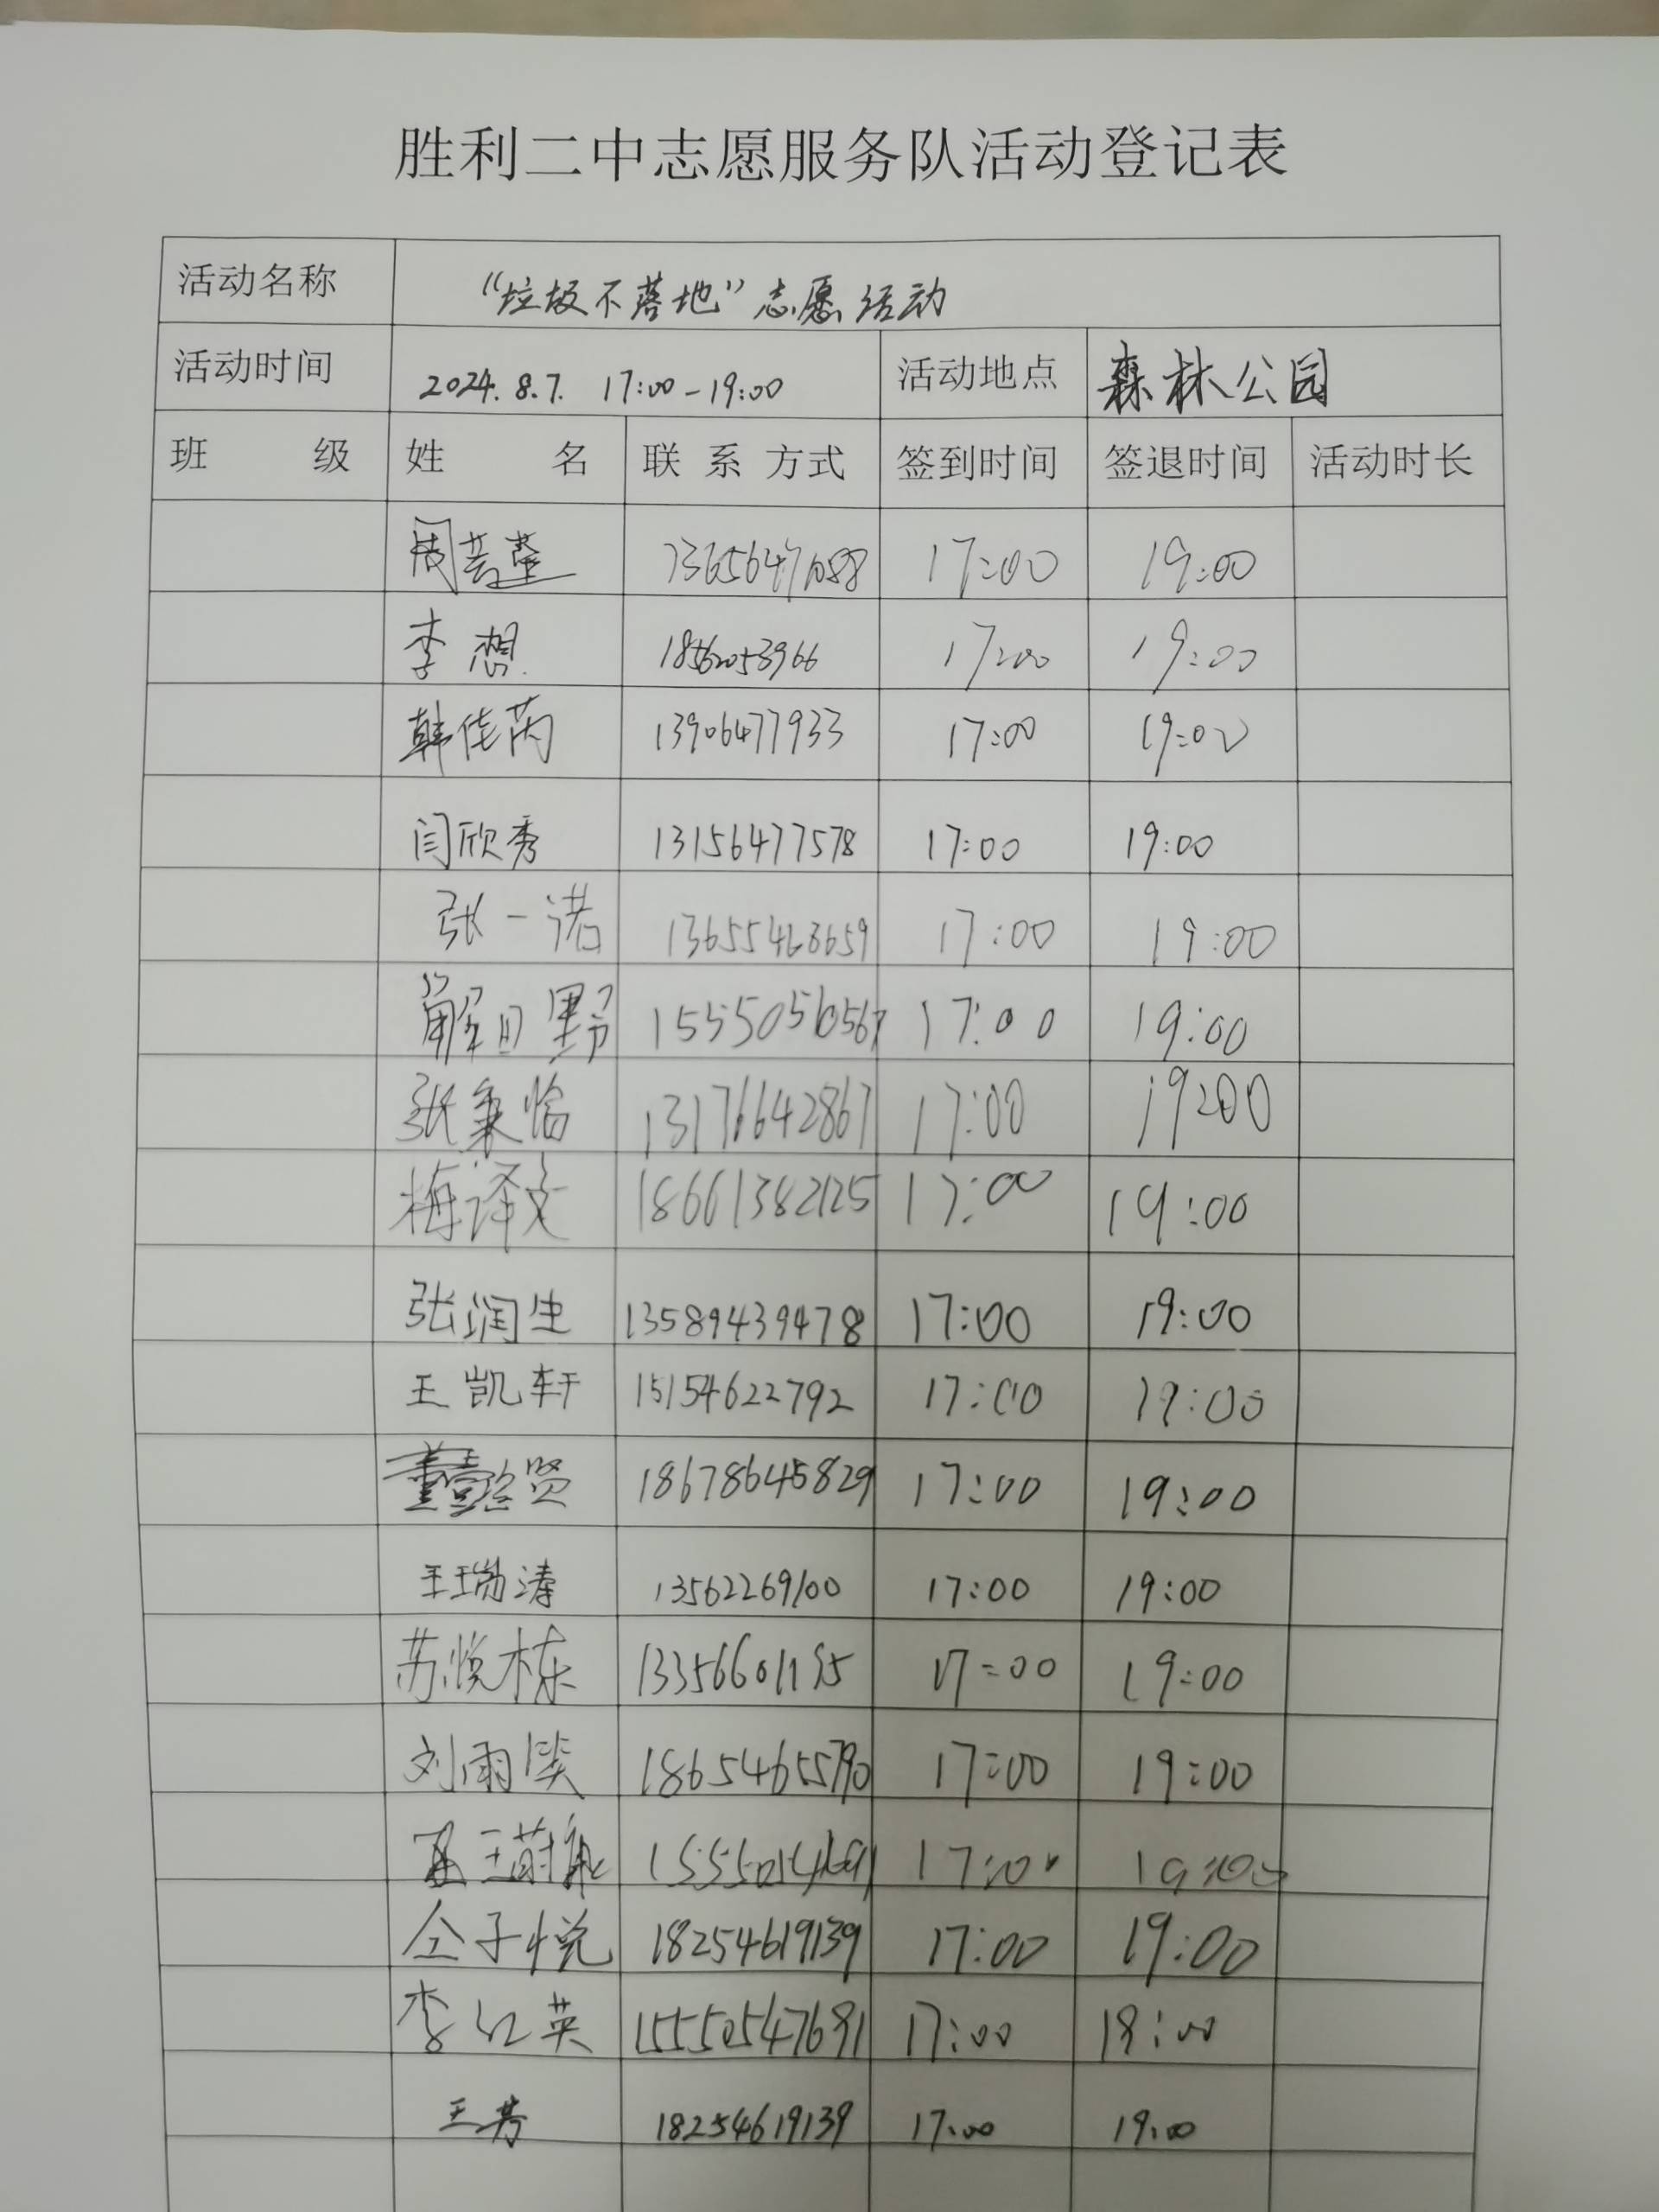 胜利二中志愿服务队活动登记表
活动名称 “垃圾不落地”志愿活动
活动时间 2024.8.7. 17:00-19:00 活动地点 森林公园
班 级 姓 名 联 系 方式 签到时间 签退时间 活动时长
17:00 19:00
李想 17:00 19:00
韩佳芮 13906477933 17:00 19:00
闫欣秀 13156477578 17:00 19:00
张一诺 17:00 19:00
17:00 19:00
13176642867 17:00 19:00
梅译文 18661382125 17:00 19:00
张润生 13589439478 17:00 19:00
王凯轩 15154622792 17:00 19:00
18678645829 17:00 19:00
王瑞涛 13562269100 17:00 19:00
苏悦栋 17:00 19:00
17:00 19:00
17:00 19:00
仝子悦 18254619139 17:00 19:00
李红英 17:00 19:00
王芳 18254619139 17:00 19:00